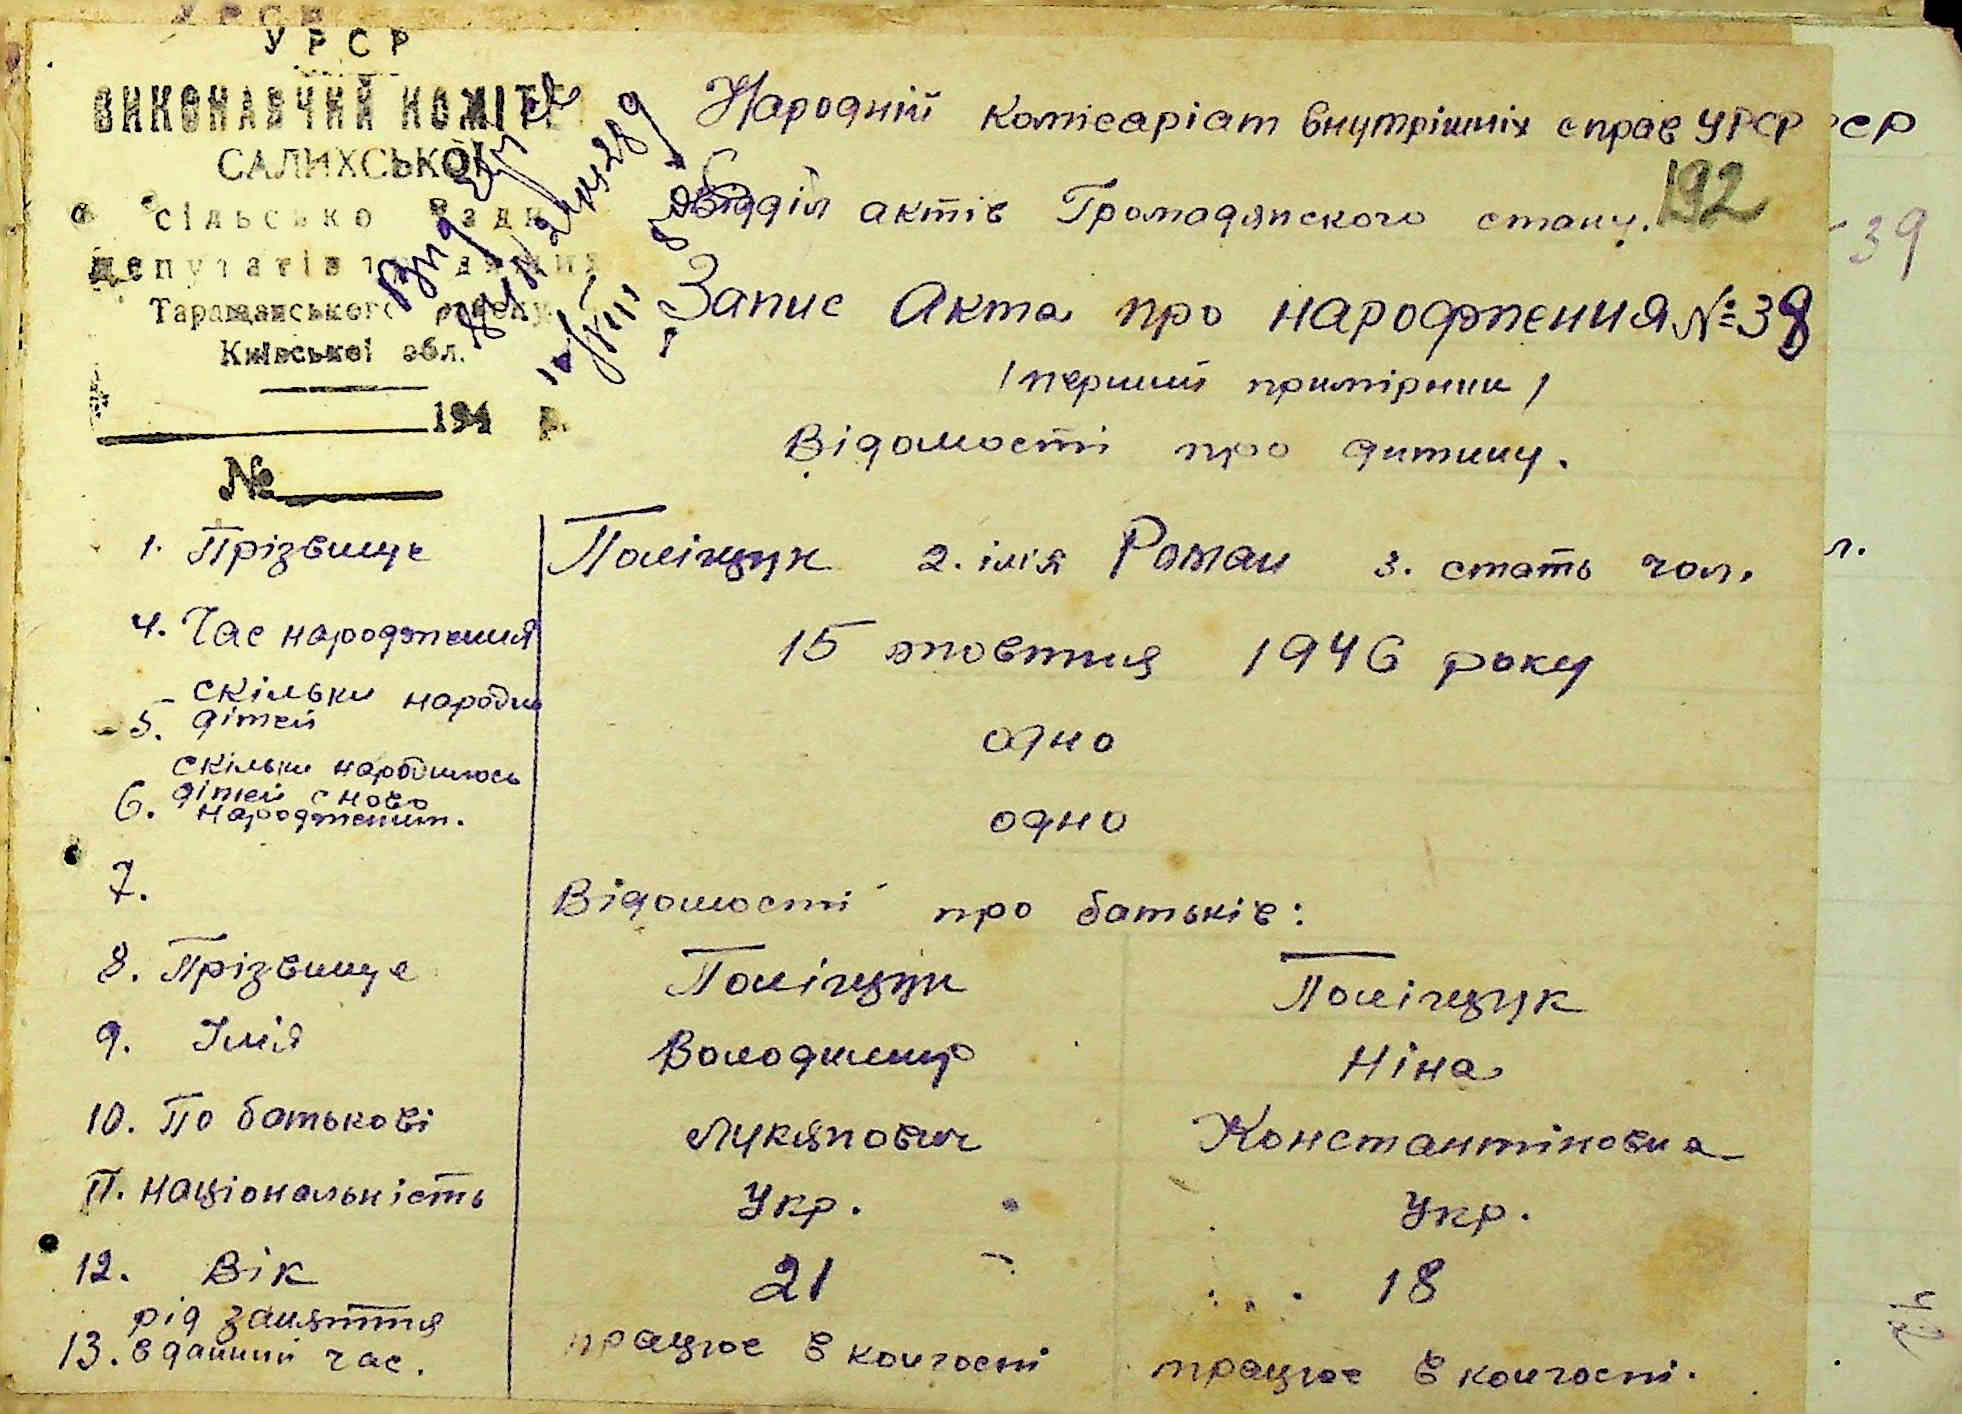 УРСР
ВИКОНАВЧИЙ КОМІТЕ
САЛИХСЬКОЇ
сільсько
депутатів
Таращанського
Київської обл.
194 р.
№
Народній Комісаріат внутрішніх справ УРСР
РСР
Відділ актів Громадянского стану.
192
39
Запис Акта про народження № 38
/перший примірник/
Відомості про дитину.
1. Прізвище Поліщук 2. імія Роман 3. стать чол.
л.
4. Час народження 15 жовтня 1946 року
5. скільки народил дітей одно
6. скільки народилось дітей с ново народженим. одно
7.
Відомості про батьків:
8. Прізвище Поліщук Поліщук
9. Імія Володимир Ніна
10. По батькові Лукянович Константіновна
11. національність Укр. Укр.
12. Вік 21 18
13. рід заняття в даний час. працює в колгоспі працює в колгоспі.